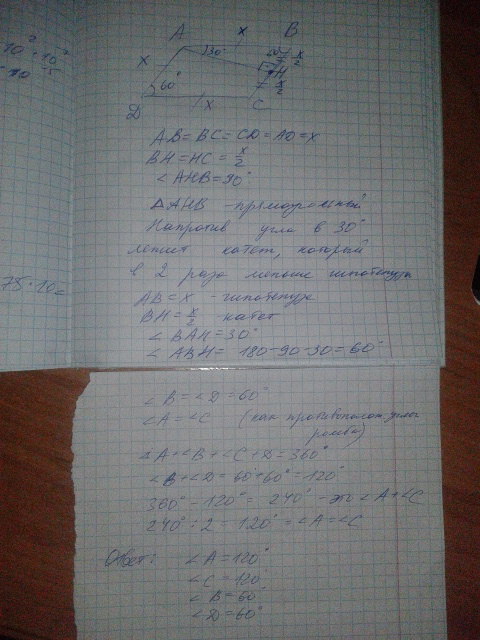 A x B
30° 60° x/2
x H
60° x/2
D x C
AB = BC = CD = AD = x
BH = HC = x/2
∠AHB = 90°
ΔAHB - прямоугольный
Напротив угла в 30°
лежит катет, который
в 2 раза меньше гипотенузы
AB = x - гипотенуза
BH = x/2 катет
∠BAH = 30°
∠ABH = 180-90-30 = 60°
75·10=
∠B = ∠D = 60°
∠A = ∠C (как противополож углы
ромба)
∠A+∠B+∠C+D = 360°
∠B+∠D = 60°+60° = 120°
360° - 120° = 240° - это ∠A+∠C
240° : 2 = 120° = ∠A = ∠C
Ответ: ∠A = 120°
∠C = 120°
∠B = 60°
∠D = 60°